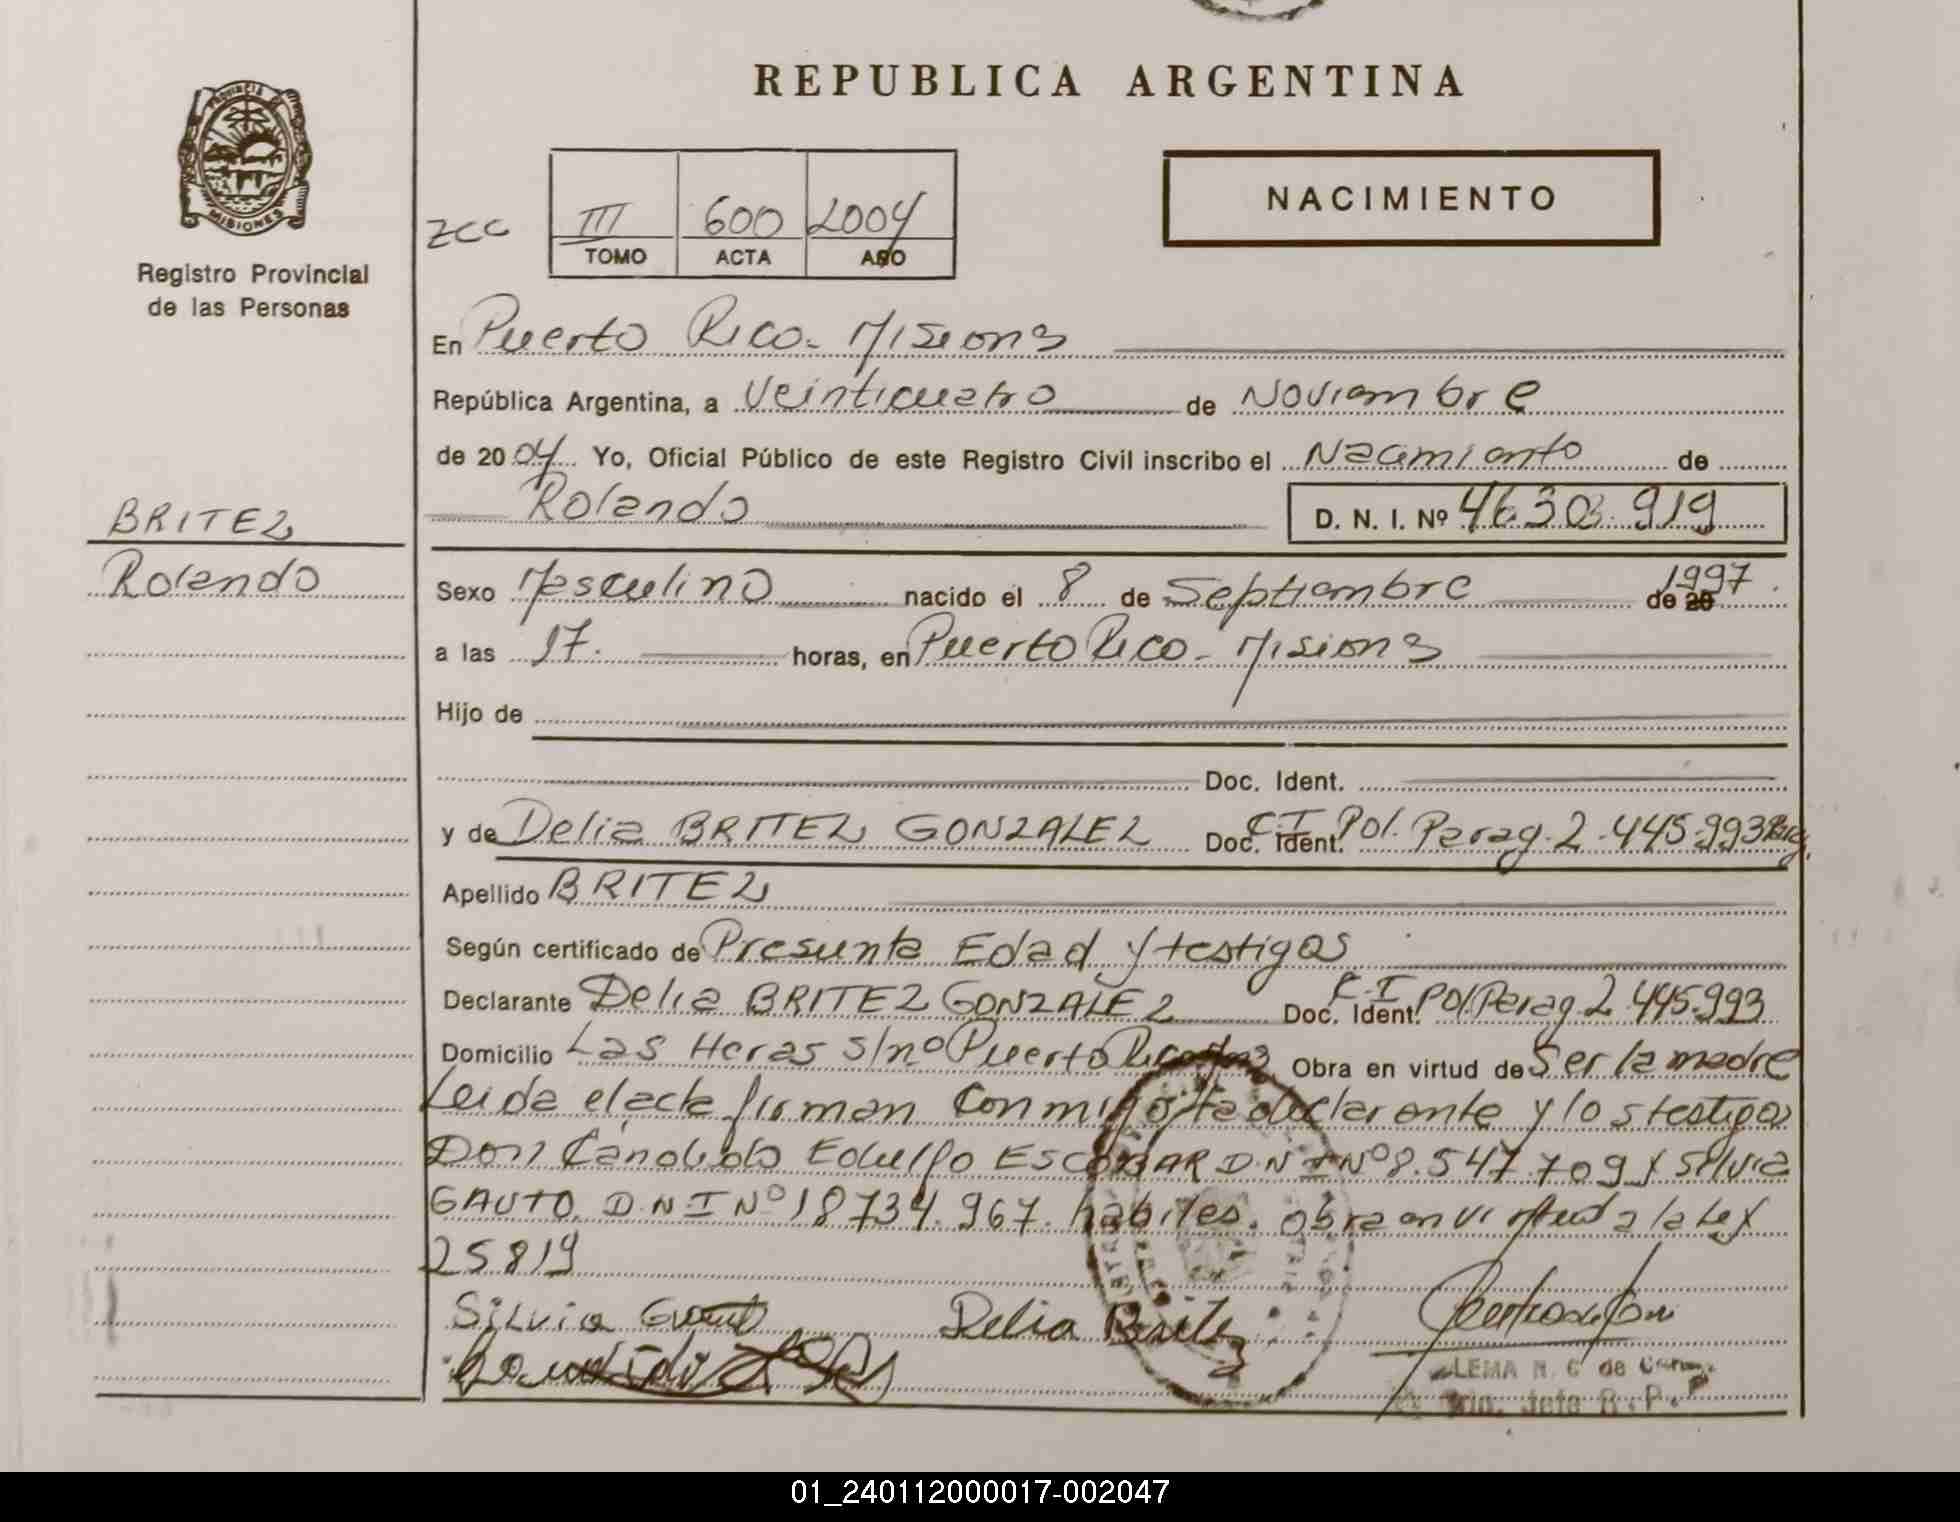 REPUBLICA ARGENTINA
PROVINCIA
MISIONES
Registro Provincial
de las Personas
NACIMIENTO
zcc
III 600 2004
TOMO ACTA AÑO
En Puerto Rico - Misiones
República Argentina, a Veinticuatro de Noviembre
de 2004 Yo, Oficial Público de este Registro Civil inscribo el Nacimiento de
Rolando D. N. I. Nº 46.303.919
BRITEZ
Rolando
Sexo Masculino nacido el 8 de Septiembre de 20 1997
a las 17. horas, en Puerto Rico - Misiones
Hijo de
Doc. Ident.
y de Delia BRITEZ GONZALEZ Doc. Ident. C.I Pol. Parag. 2.445.993
Apellido BRITEZ
Según certificado de Presunta Edad y testigos
Declarante Delia BRITEZ GONZALEZ Doc. Ident. C.I Pol. Parag. 2.445.993
Domicilio Las Heras s/nº Puerto Rico Obra en virtud de Ser la madre
Leida el acta firman conmigo la declarante y los testigos
Don Candido Edulfo ESCOBAR D.N.I Nº 8.547.709 y Silvia
GAUTO D.N.I Nº 18734.967. habiles. obra en virtud a la Ley
25819
Silvia Delia Britez
LEMA N. C de
Jefe R. P.
01_240112000017-002047